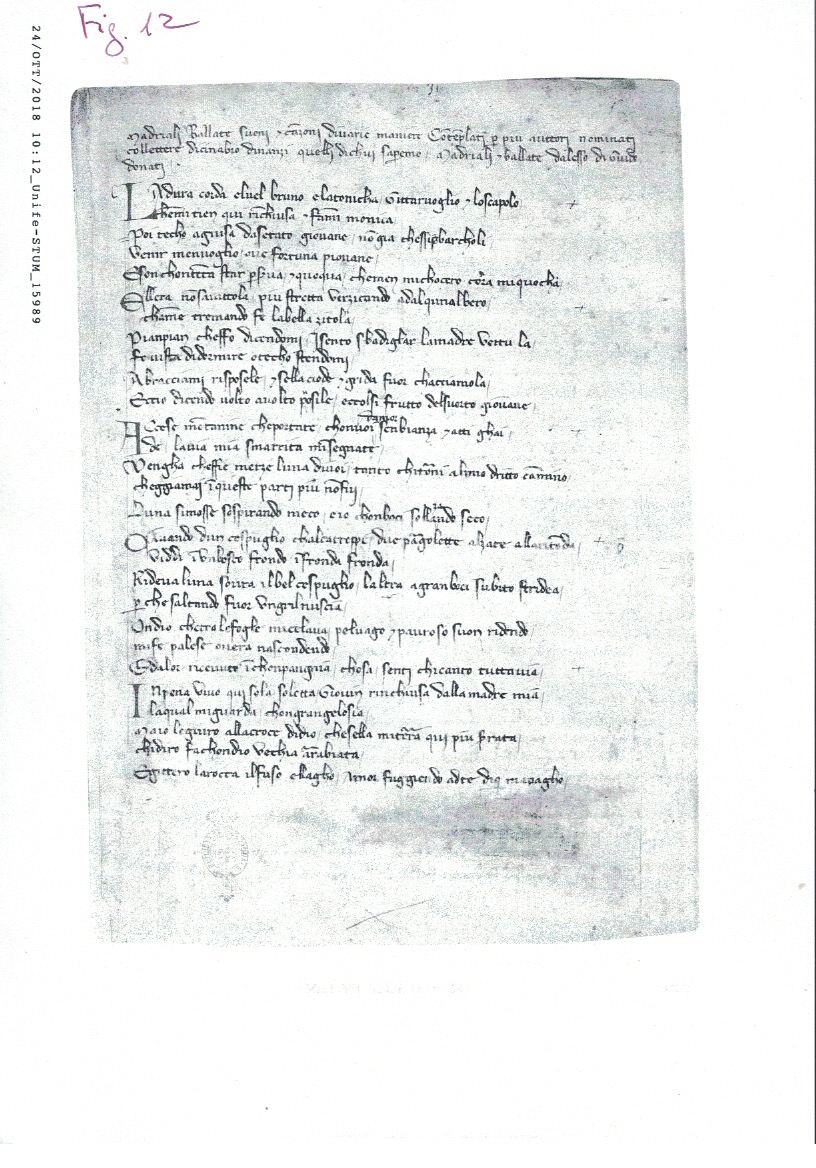 Fig. 12
24/OTT/2018 10:12_Unife-STUM_15989
Madriali Ballate suoni ⁊ cãzoni divarie maniere Cõtẽplati ꝑ piu auttori nominati
collettere dicinabro dinanzi quelli dichui sapemo Madriali ⁊ ballate dalesso di Guido
donati
LAdura corda eluel bruno elatonicha / Gittar voglio ⁊ loscapolo
chemi tien qui rĩchiusa ⁊ fãmi monica
Poi techo aguisa dasetato giovane / nõ gia
Venir menvoglio ove fortuna piovane /
Eson chontẽta star ꝑ serva ⁊ quoqua / chemen michocero cõra miquocha
Ellera nõ savittola piu stretta verzicando adalqunalbero
chame tremando fe labella zitola
Pianpian cheffo dicendomi / Isento sbadigliar lamadre Vettu la
fe vista didormire otecho stendomi
Abracciami risposele ⁊ sella ciode ⁊ grida fuor chacciamola
Eccio dicendo volto avolto posile / eccolsi frutto delsuorto giovane /
ACcese chepertate / chonvoi senbianza ⁊ atti ghai
de lavia mia smarrita misegnate
Vengha cheffie merze luna divoi / tanto chitorni almio dritto camino
cheggiamai ĩ queste parti piu nõ fui
Luna simosse sospirando meco / eio chonbaci sollando seco /
QUando dun cespuglio chalcatreppi due pãgolette alzate allaritõda
Viddi frondo isfronda fronda /
Rideva luna sovra ilbel cespuglio / laltra agranboci subito stridea /
ꝑ che saltando fuor Vngril nuscia
Ondio chetro lefoglie micelava / peluago ⁊ pauroso suon ridendo
mife palese overa nascondendo
Edalor ricevuto ĩ chonpangnia / chosa senti chicanto tuttavia
INpena vivo qui sola soletta Giovin rinchiusa dalla madre mia
laqual miguarda chongrangelosia
Maio legiuro allacroce didio / chesella miterra qui piu serata
chidiro fachondio vechia arrabiata
Egittero larocca ilfuso elagho / Amor fuggiendo adte